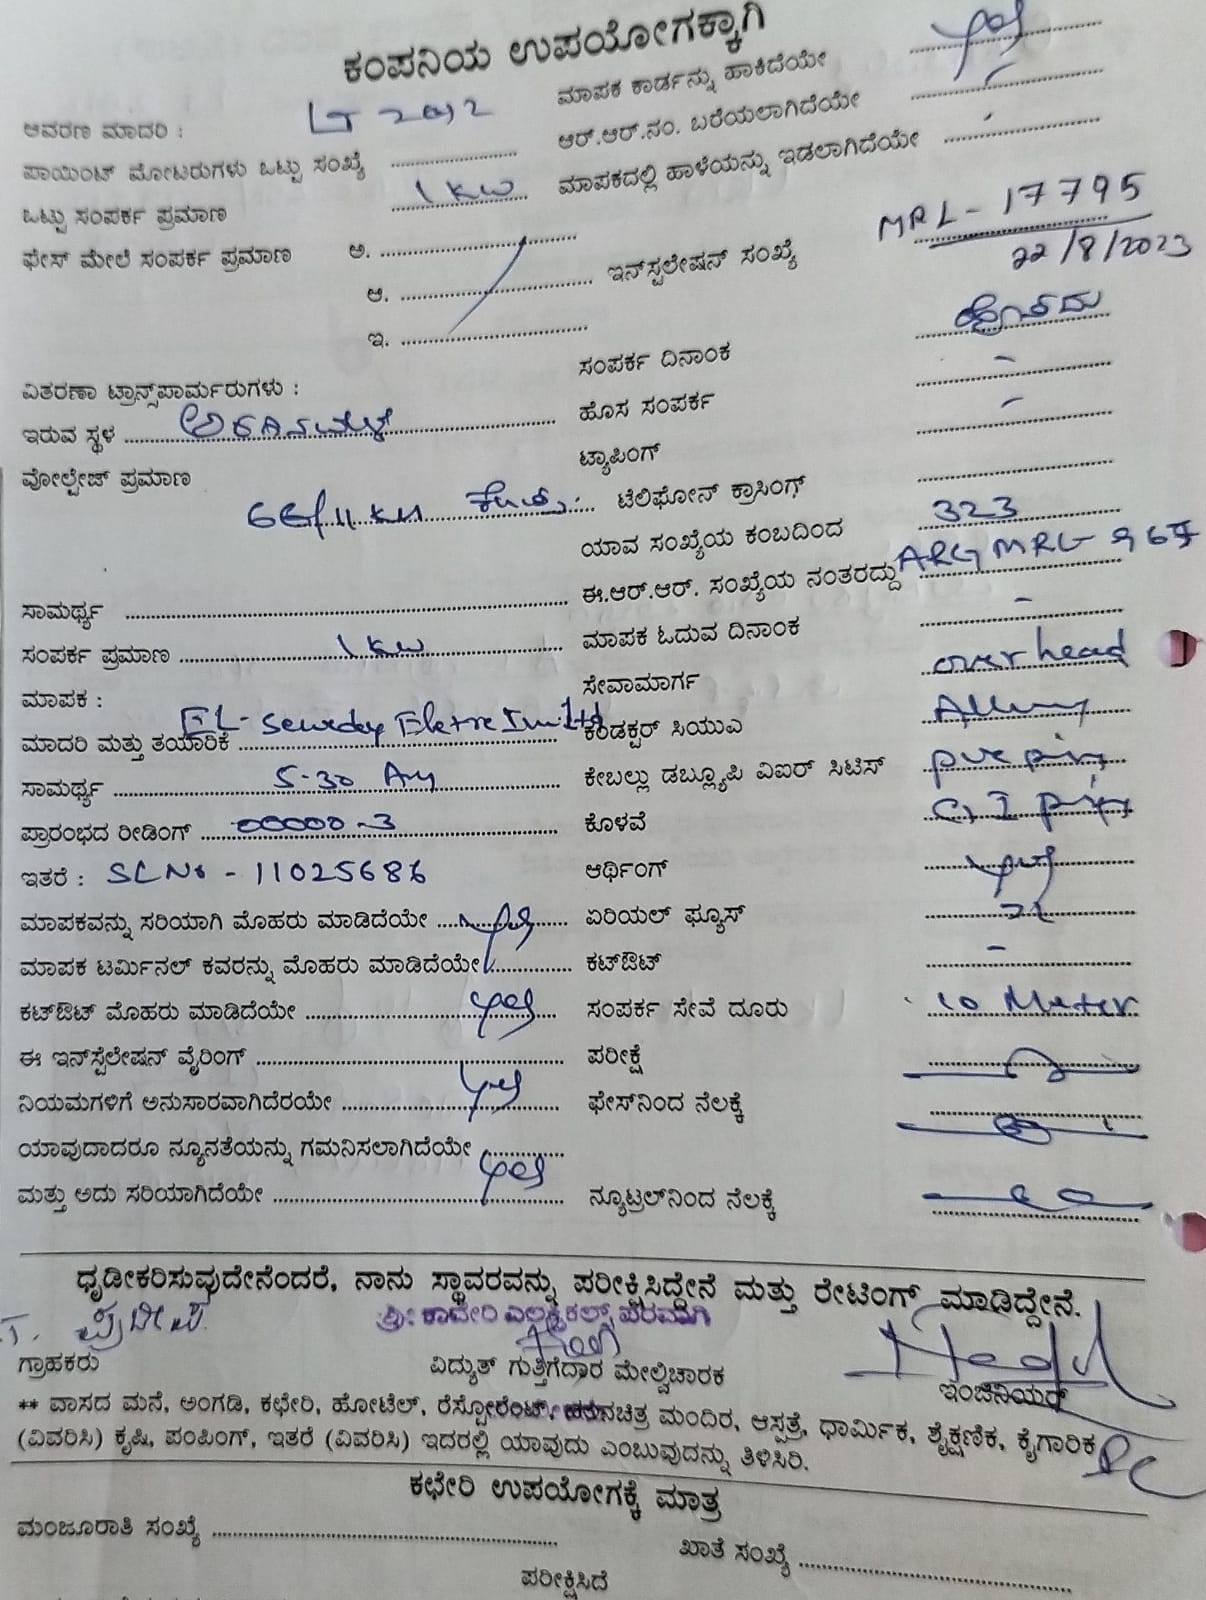 ಕಂಪನಿಯ ಉಪಯೋಗಕ್ಕಾಗಿ
ಆವರಣ ಮಾದರಿ : LT
ಮಾಪಕ ಕಾರ್ಡನ್ನು ಹಾಕಿದೆಯೇ yes
ಪಾಯಿಂಟ್ ಮೋಟರುಗಳು ಒಟ್ಟು ಸಂಖ್ಯೆ
ಆರ್.ಆರ್.ನಂ. ಬರೆಯಲಾಗಿದೆಯೇ
ಒಟ್ಟು ಸಂಪರ್ಕ ಪ್ರಮಾಣ 1 KW
ಮಾಪಕದಲ್ಲಿ ಹಾಳೆಯನ್ನು ಇಡಲಾಗಿದೆಯೇ
ಫೇಸ್ ಮೇಲೆ ಸಂಪರ್ಕ ಪ್ರಮಾಣ ಅ.
ಆ.
ಇ.
ಇನ್‌ಸ್ಟಲೇಷನ್ ಸಂಖ್ಯೆ MRL - 17795
22/8/2023
ಸಂಪರ್ಕ ದಿನಾಂಕ
ವಿತರಣಾ ಟ್ರಾನ್ಸ್‌ಪಾರ್ಮರುಗಳು :
ಹೊಸ ಸಂಪರ್ಕ -
ಇರುವ ಸ್ಥಳ
ಟ್ಯಾಪಿಂಗ್ -
ವೋಲ್ಟೇಜ್ ಪ್ರಮಾಣ 66/11 KV
ಟೆಲಿಫೋನ್ ಕ್ರಾಸಿಂಗ್
ಯಾವ ಸಂಖ್ಯೆಯ ಕಂಬದಿಂದ 323
ಸಾಮರ್ಥ್ಯ
ಈ.ಆರ್.ಆರ್. ಸಂಖ್ಯೆಯ ನಂತರದ್ದು
ಸಂಪರ್ಕ ಪ್ರಮಾಣ 1 KW
ಮಾಪಕ ಓದುವ ದಿನಾಂಕ -
ಮಾಪಕ :
ಸೇವಾಮಾರ್ಗ over head
ಮಾದರಿ ಮತ್ತು ತಯಾರಿಕೆ
ಕಂಡಕ್ಟರ್ ಸಿಯುಎ
ಸಾಮರ್ಥ್ಯ 5-30
ಕೇಬಲ್ಲು ಡಬ್ಲ್ಯೂಪಿ ವಿಐರ್ ಸಿಟಿಸ್
ಪ್ರಾರಂಭದ ರೀಡಿಂಗ್ 00000-3
ಕೊಳವೆ
ಇತರೆ : SL No - 11025686
ಆರ್ಥಿಂಗ್ yes
ಮಾಪಕವನ್ನು ಸರಿಯಾಗಿ ಮೊಹರು ಮಾಡಿದೆಯೇ yes
ಏರಿಯಲ್ ಫ್ಯೂಸ್
ಮಾಪಕ ಟರ್ಮಿನಲ್ ಕವರನ್ನು ಮೊಹರು ಮಾಡಿದೆಯೇ
ಕಟ್‌ಔಟ್ -
ಕಟ್‌ಔಟ್ ಮೊಹರು ಮಾಡಿದೆಯೇ yes
ಸಂಪರ್ಕ ಸೇವೆ ದೂರು 10 Meter
ಈ ಇನ್‌ಸ್ಟೆಲೇಷನ್ ವೈರಿಂಗ್
ಪರೀಕ್ಷೆ
ನಿಯಮಗಳಿಗೆ ಅನುಸಾರವಾಗಿದೆರಯೇ yes
ಫೇಸ್‌ನಿಂದ ನೆಲಕ್ಕೆ
ಯಾವುದಾದರೂ ನ್ಯೂನತೆಯನ್ನು ಗಮನಿಸಲಾಗಿದೆಯೇ
ಮತ್ತು ಅದು ಸರಿಯಾಗಿದೆಯೇ yes
ನ್ಯೂಟ್ರಲ್‌ನಿಂದ ನೆಲಕ್ಕೆ
ಧೃಡೀಕರಿಸುವುದೇನೆಂದರೆ, ನಾನು ಸ್ಥಾವರವನ್ನು ಪರೀಕ್ಷಿಸಿದ್ದೇನೆ ಮತ್ತು ರೇಟಿಂಗ್ ಮಾಡಿದ್ದೇನೆ.
ಶ್ರೀ ಕಾವೇರಿ ಎಲೆಕ್ಟ್ರಿಕಲ್ಸ್ ಪರವಾಗಿ
ಗ್ರಾಹಕರು
ವಿದ್ಯುತ್ ಗುತ್ತಿಗೆದ್ದಾರ ಮೇಲ್ವಿಚಾರಕ
ಇಂಜಿನಿಯರ್
** ವಾಸದ ಮನೆ, ಅಂಗಡಿ, ಕಛೇರಿ, ಹೋಟೆಲ್, ರೆಸ್ಟೋರೆಂಟ್, ಚಲನಚಿತ್ರ ಮಂದಿರ, ಆಸ್ಪತ್ರೆ, ಧಾರ್ಮಿಕ, ಶೈಕ್ಷಣಿಕ, ಕೈಗಾರಿಕ
(ವಿವರಿಸಿ) ಕೃಷಿ, ಪಂಪಿಂಗ್, ಇತರೆ (ವಿವರಿಸಿ) ಇದರಲ್ಲಿ ಯಾವುದು ಎಂಬುವುದನ್ನು ತಿಳಿಸಿರಿ.
ಕಛೇರಿ ಉಪಯೋಗಕ್ಕೆ ಮಾತ್ರ
ಮಂಜೂರಾತಿ ಸಂಖ್ಯೆ
ಖಾತೆ ಸಂಖ್ಯೆ
ಪರೀಕ್ಷಿಸಿದೆ